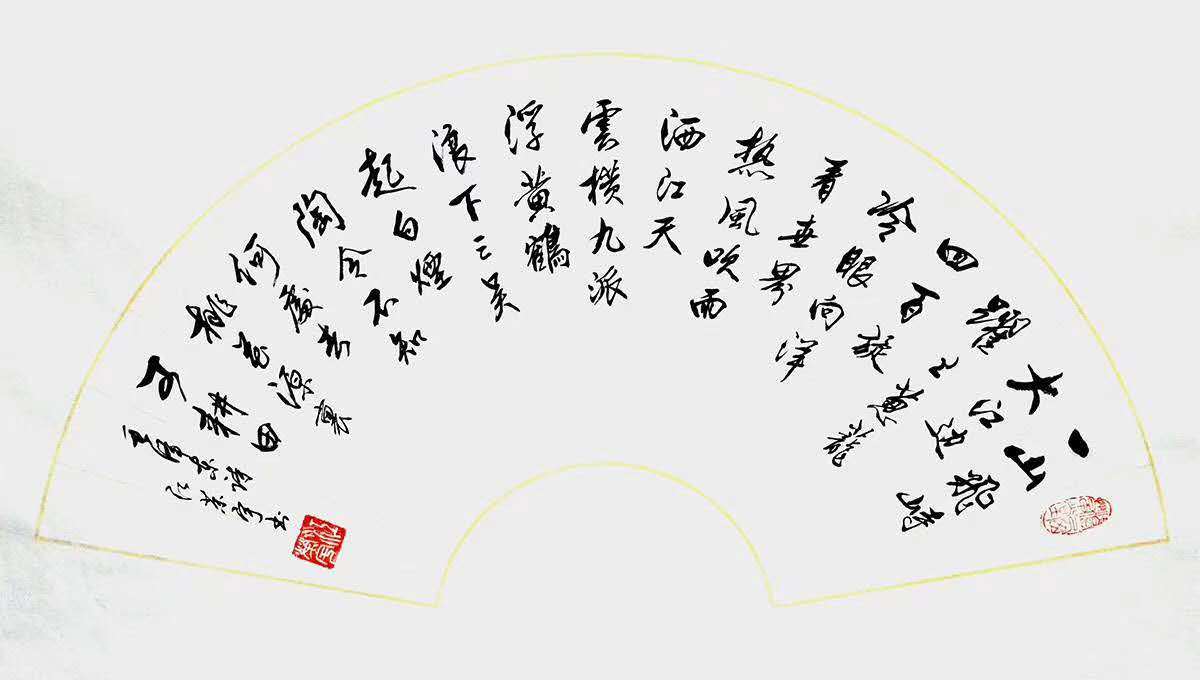 一山飛峙
大江边
躍上葱蘢
四百旋
冷眼向洋
看世界
热風吹雨
洒江天
雲横九派
浮黄鶴
浪下三吴
起白煙
陶令不知
何處去
桃花源裏
可耕田
毛泽东詩